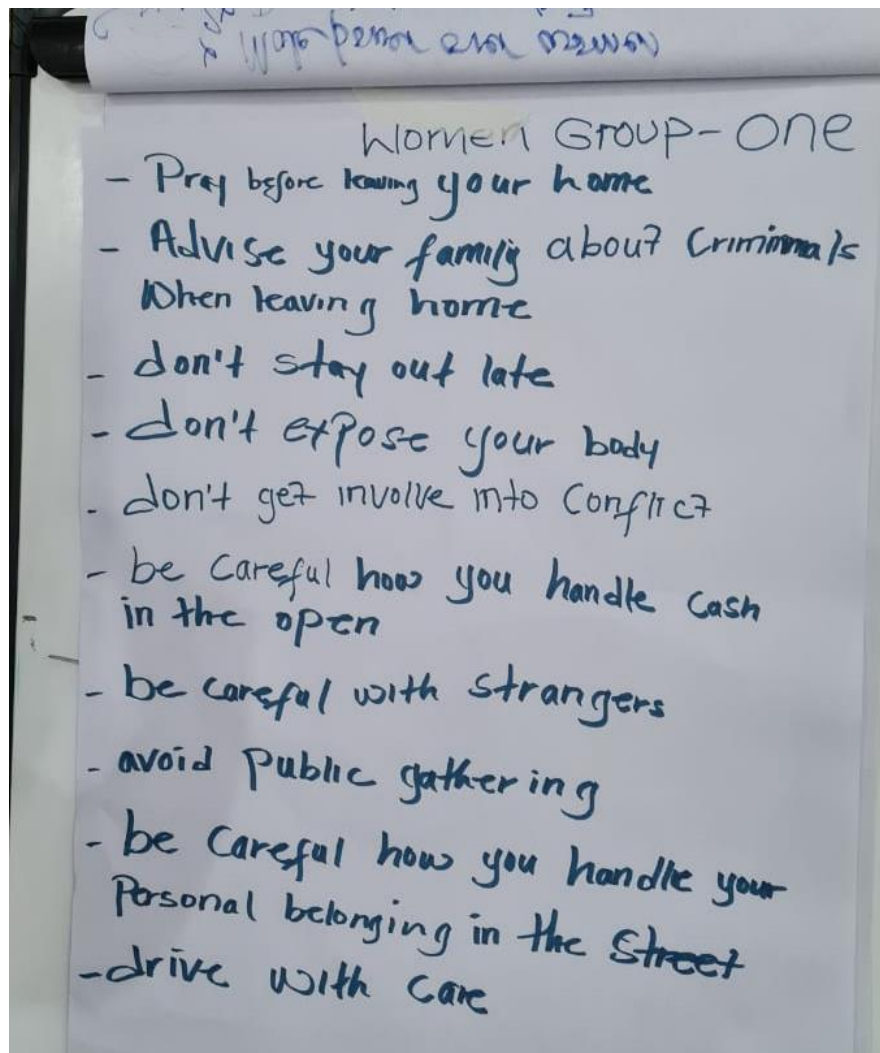 Women Group-One
- Pray before leaving your home
- Advise your family about Criminals
When leaving home
- don't stay out late
- don't expose your body
- don't get involve into Conflict
- be careful how you handle cash
in the open
- be careful with strangers
- avoid public gathering
- be Careful how you handle your
Personal belonging in the street
- drive with care